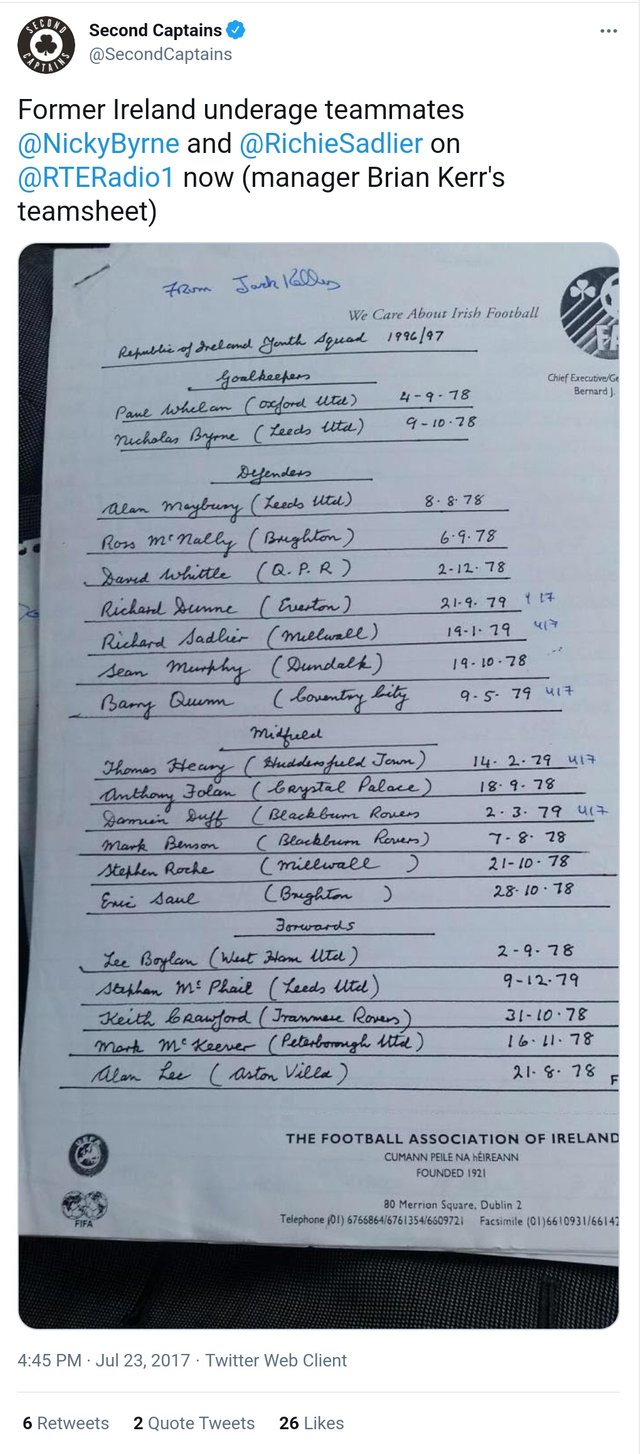 Second Captains
@SecondCaptains
Former Ireland underage teammates
@NickyByrne and @RichieSadlier on
@RTERadio1 now (manager Brian Kerr's
teamsheet)
From Jack
We Care About Irish Football
Republic of Ireland Youth Squad 1996/97
Chief Executive/Ge
Bernard J.
Goalkeepers
Paul Whelan (Oxford Utd) 4-9-78
Nicholas Byrne (Leeds Utd) 9-10-78
Defenders
Alan Maybury (Leeds Utd) 8.8.78
Ross McNally (Brighton) 6.9.78
David Whittle (Q.P.R) 2-12-78
Richard Dunne (Everton) 21-9.79 U17
Richard Sadlier (Millwall) 19-1.79 U17
Sean Murphy (Dundalk) 19-10-78
Barry Quinn (Coventry City 9-5-79 U17
Midfield
Thomas Heary (Huddersfield Town) 14.2.79 U17
Anthony Folan (Crystal Palace) 18.9.78
Damien Duff (Blackburn Rovers 2.3.79 U17
Mark Benson (Blackburn Rovers) 7-8.78
Stephen Roche (Millwall) 21-10.78
Eric Saul (Brighton) 28.10.78
Forwards
Lee Boylan (West Ham Utd) 2-9-78
Stephen McPhail (Leeds Utd) 9-12.79
Keith Crawford (Tranmere Rovers) 31-10.78
Mark McKeever (Peterborough Utd) 16.11.78
Alan Lee (Aston Villa) 21.8.78
F
THE FOOTBALL ASSOCIATION OF IRELAND
CUMANN PEILE NA hÉIREANN
FOUNDED 1921
80 Merrion Square, Dublin 2
Telephone (01) 6766864/6761354/6609721 Facsimile (01)6610931/66147
FIFA
4:45 PM · Jul 23, 2017 · Twitter Web Client
6 Retweets 2 Quote Tweets 26 Likes